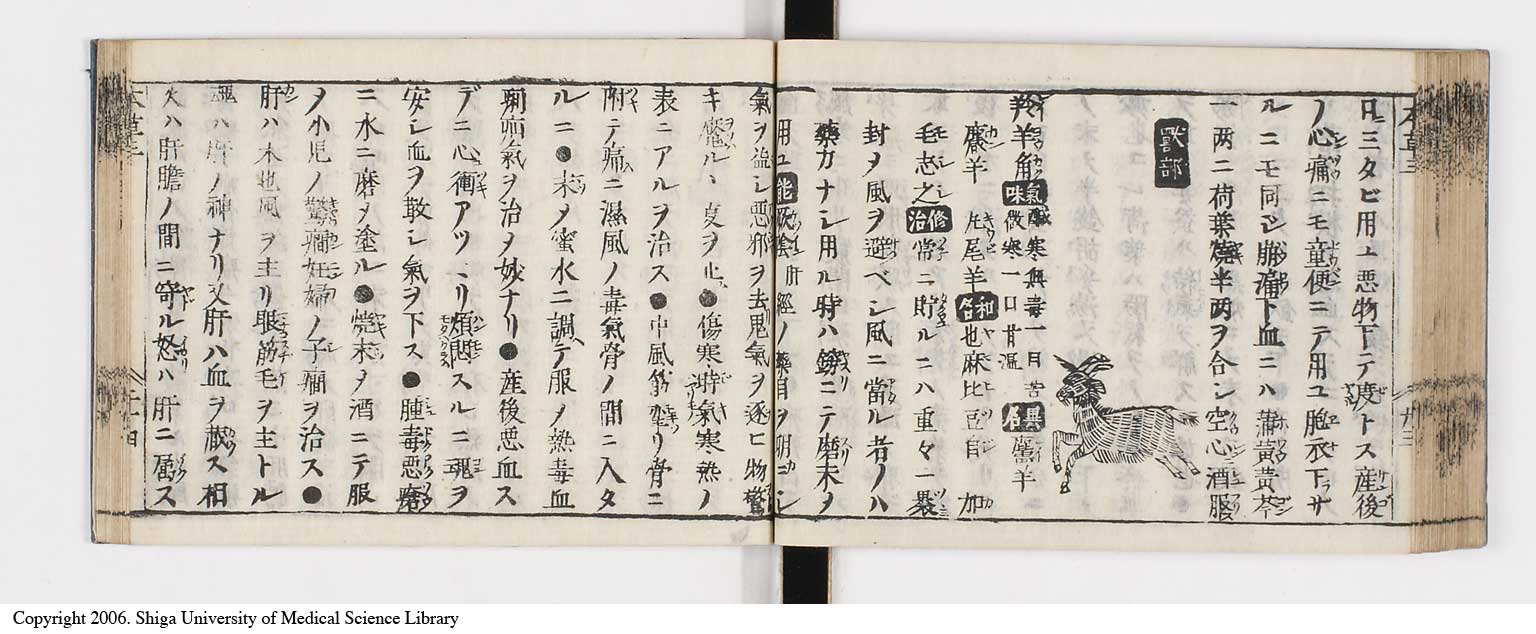 日三タビ用ユ悪物下テ度トス産後
ノ心痛ニモ童便ニテ用ユ胞衣下ラサ
ルニモ同シ腸痛下血ニハ蒲黄黄芩
一両ニ荷葉燒半両ヲ合シ空心酒服
獸部
羚羊角 氣味 鹹寒無毒一曰苦微寒一曰甘温 異名 麢羊
麙羊 九尾羊 和名 也麻比豆自 加
毛志之 修治 常ニ貯ルニハ重々ニ裹
封ヲ風ヲ避ベシ風ニ當ル者ノハ
藥力ナシ用ル時ハ鎊ニテ磨末ノ
用ユ 能 厥陰肝經ノ藥目ヲ明ニシ
氣ヲ益シ悪邪ヲ去鬼氣ヲ逐ヒ物驚
キ魔ルヽ夏ヲ止●傷寒時氣寒熱ノ
表ニアルヲ治ス●中風筋攣リ骨ニ
附テ痛ニ濕風ノ毒氣骨ノ間ニ入タ
ルニ●末ノ蜜水ニ調テ服ノ熱毒血
痢疝氣ヲ治ヲ妙ナリ●産後悪血ス
デニ心衝アツヽリ煩悶スルニ魂ヲ
安シ血ヲ散シ氣ヲ下ス●腫毒悪瘡
ニ水ニ磨ヲ塗ル●燒末ヲ酒ニテ服
ヲ小児ノ驚癇妊婦ノ子癇ヲ治ス●
肝ハ木也風ヲ主リ眼筋毛ヲ主トル
魂ハ肝ノ神ナリ又肝ハ血ヲ藏ス相
火ハ肝膽ノ間ニ寄ル怒ハ肝ニ属ス
Copyright 2006. Shiga University of Medical Science Library